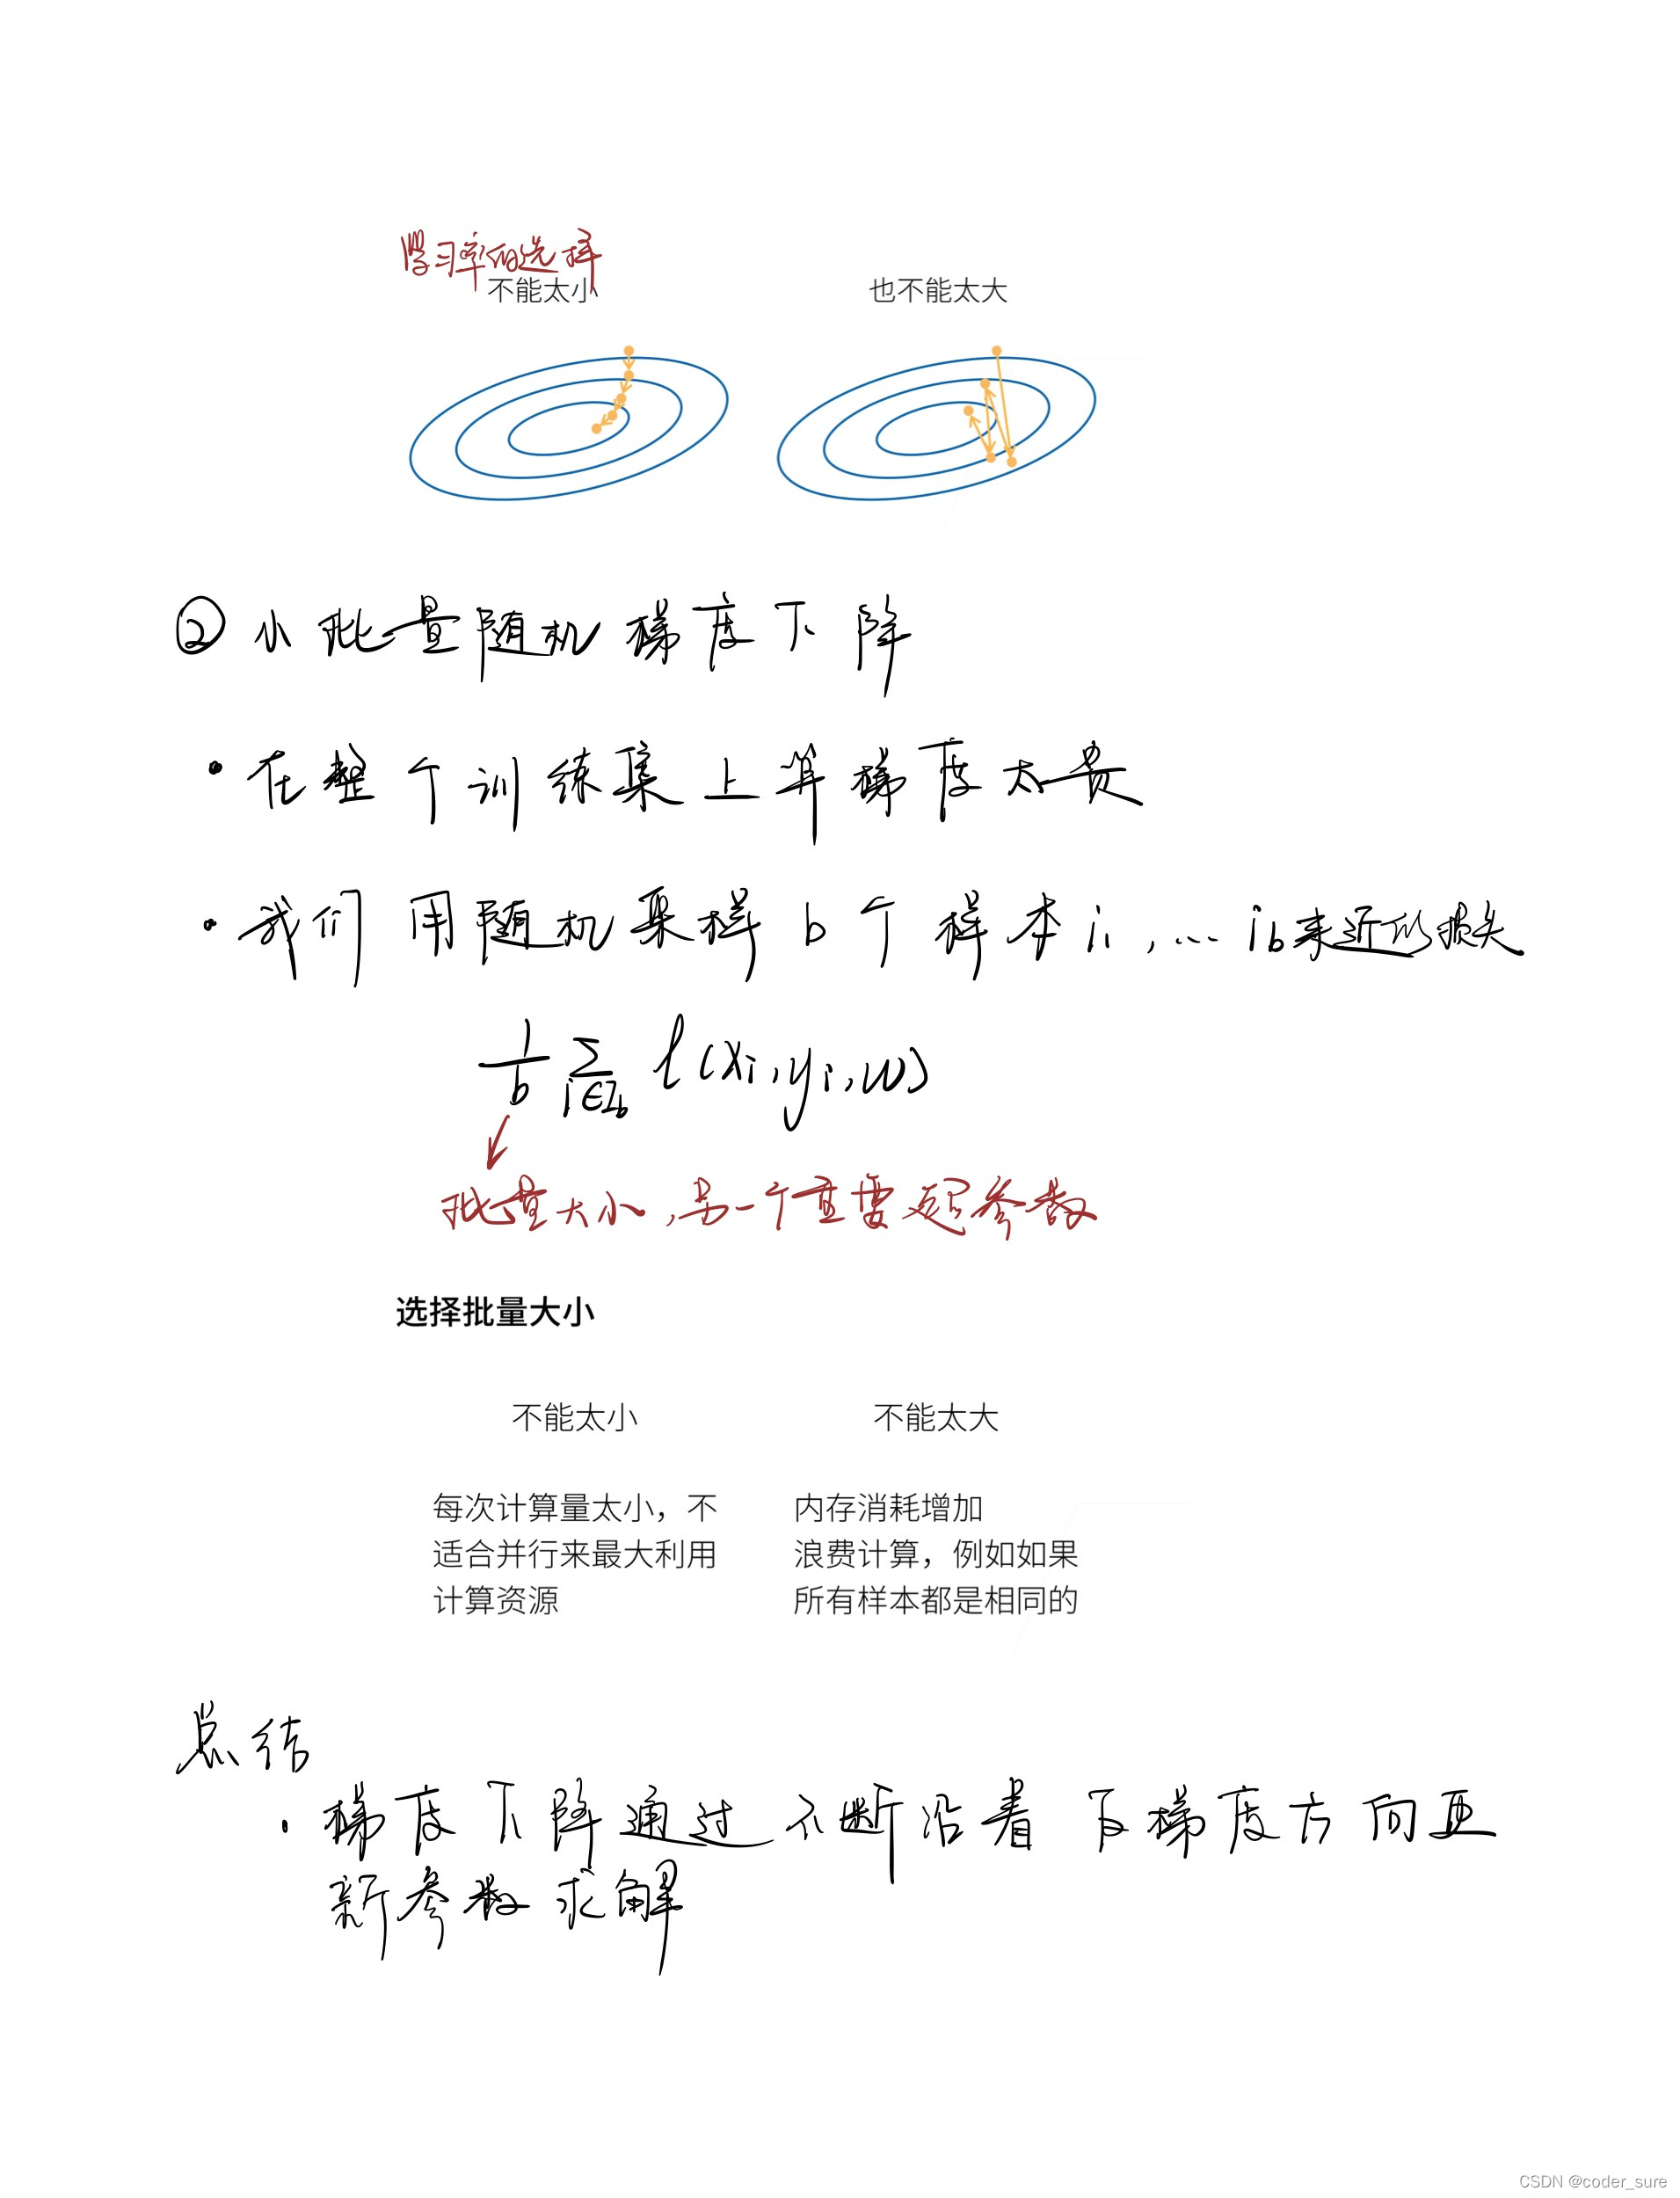 学习率的选择
不能太小
也不能太大
② 小批量随机梯度下降
• 在整个训练集上算梯度太贵
• 我们用随机采样b个样本i₁,…i_b来近似损失
1/b ∑_{i∈I_b} ℓ(xᵢ,yᵢ,w)
批量大小,另一个重要超参数
选择批量大小
不能太小
不能太大
每次计算量太小，不
适合并行来最大利用
计算资源
内存消耗增加
浪费计算，例如如果
所有样本都是相同的
总结
• 梯度下降通过不断沿着反梯度方向更
新参数求解
CSDN @coder_sure